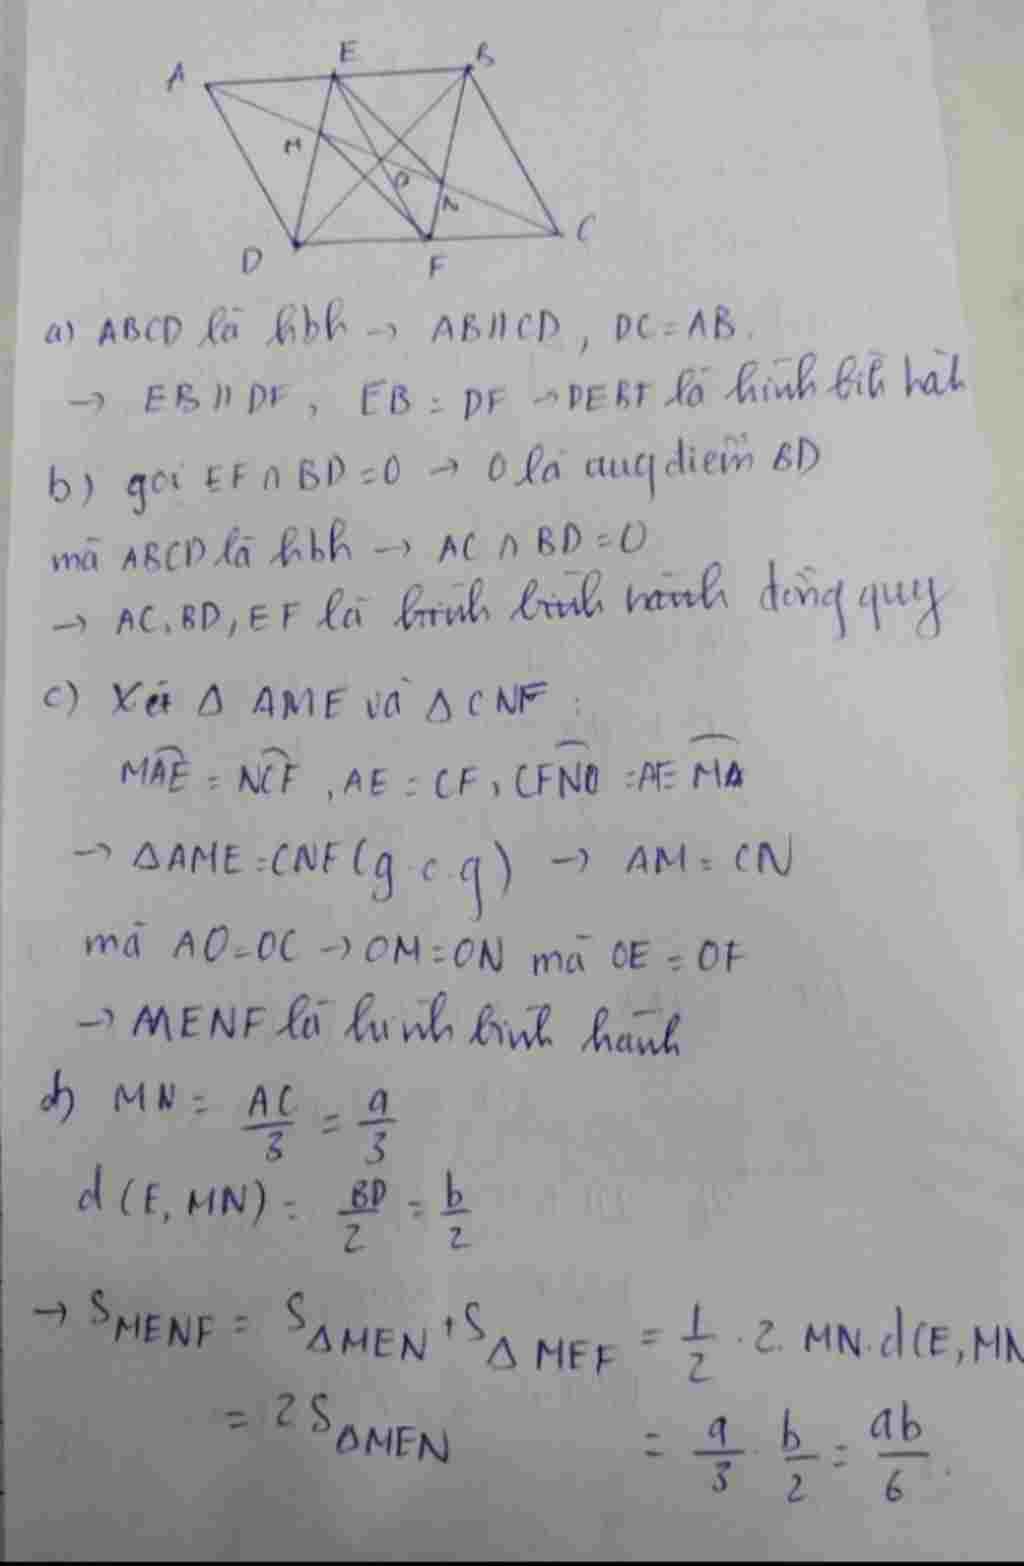 A E B
M
O
N
D F C
a) ABCD là hbh → AB//CD, DC = AB.
→ EB // DF, EB = DF → DEBF là hình bìh hàh
b) gọi EF ∩ BD = O → O là điểm BD
mà ABCD là hbh → AC ∩ BD = O
→ AC, BD, EF là hình bình hành đồng quy
c) Xét Δ AME và Δ CNF :
MAE = NCF, AE = CF,
→ ΔAME = CNF (g.c.g) → AM = CN
mà AO = OC → OM = ON mà OE = OF
→ MENF là hình bình hành
d) MN = AC/3 = a/3
d(E, MN) = BD/2 = b/2
→ S MENF = S ΔMEN + S Δ MEF = 1/2 . 2. MN. d(E, MN
= 2S ΔMEN = a/3 . b/2 = ab/6 .